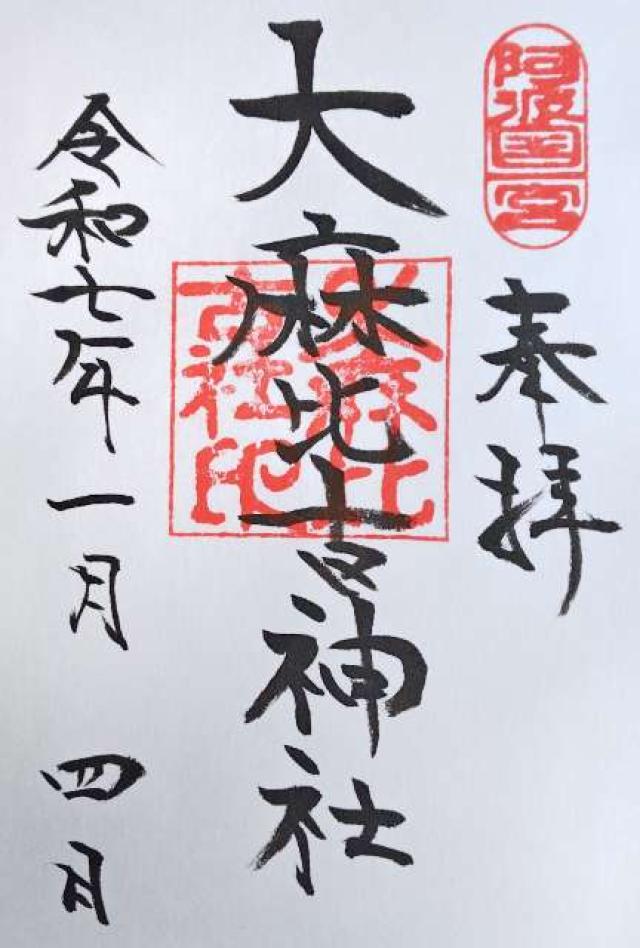 阿波国一宮
奉拝
大麻比古神社
大麻比
古社印
令和七年一月 四日